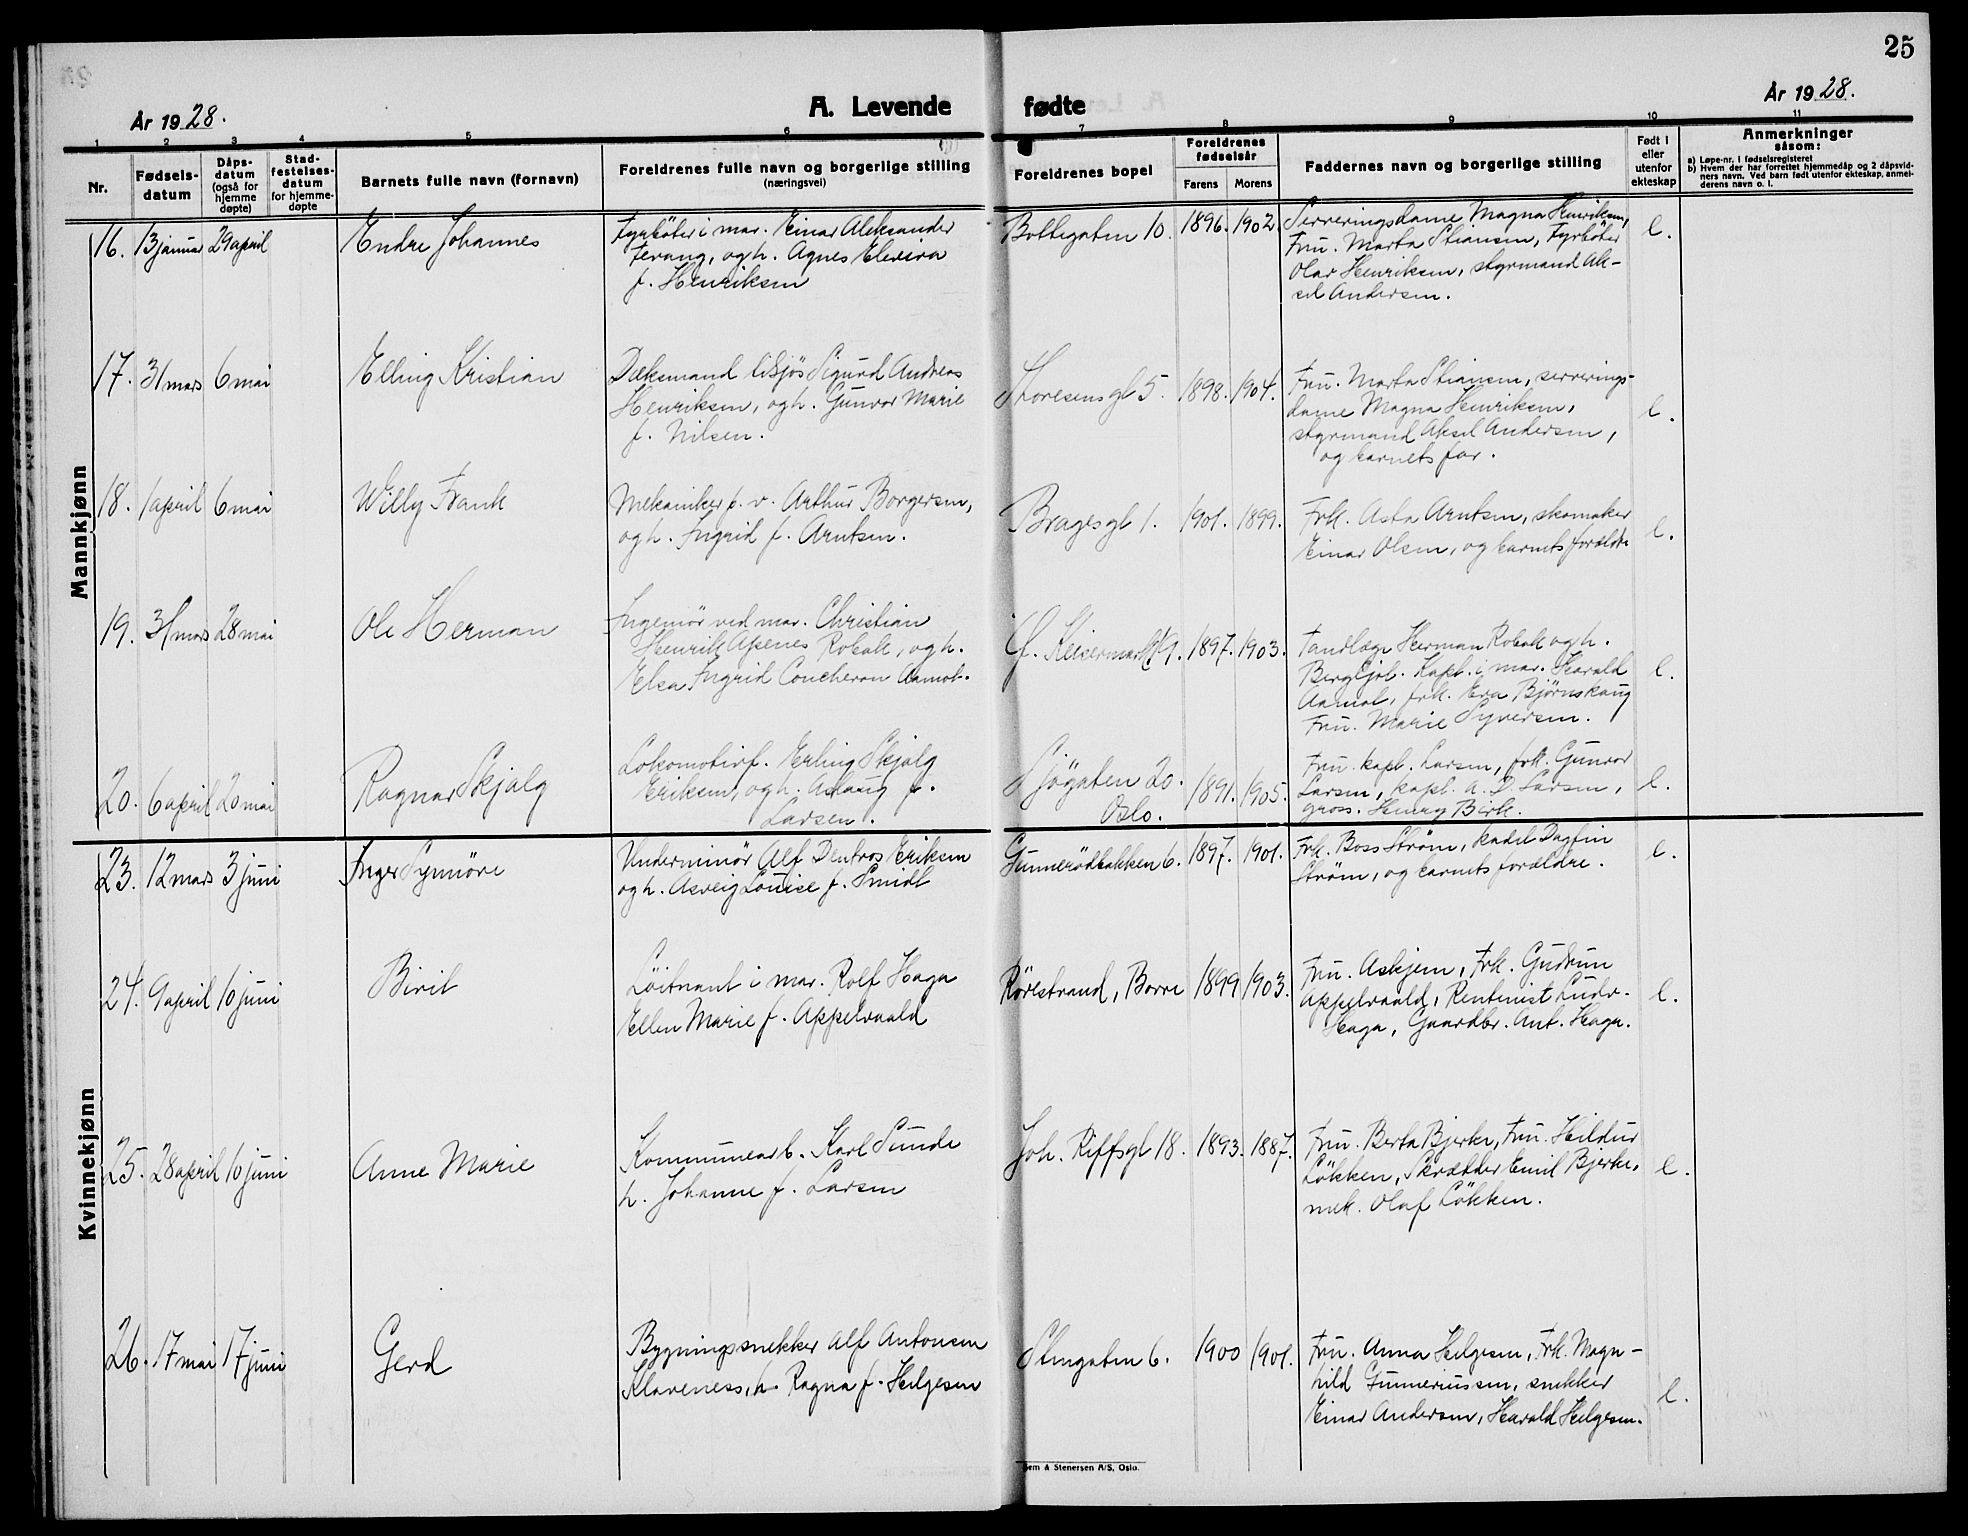 25
År 1928.
A. Levende fødte
År 1928.
1 2 3 4 5 6 7 8 9 10 11
Nr.
Fødsels-
datum
Dåps-
datum
(også for
hjemme
døpte)
Stad-
festelses-
datum
for hjemme-
døpte
Barnets fulle navn (fornavn)
Foreldrenes fulle navn og borgerlige stilling
(næringsvei)
Foreldrenes bopel
Foreldrenes
fødselsår
Farens Morens
Faddernes navn og borgerlige stilling
Født i
eller
utenfor
ekteskap
Anmerkninger
såsom:
a) Løpe-nr. i fødselsregisteret
b) Hvem der har forrettet hjemmedåp og 2 dåpsvid-
ners navn. Ved barn født utenfor ekteskap, anmel-
derens navn o. l.
Mannkjønn
16. 13 januar 29 april Endre Johannes
Fyrböter i mar. Einar Aleksander
Ferang, og h. Agnes Elevira
f. Henriksen
Bottegaten 10. 1896. 1902.
Serveringsdame Magna Henriksen,
Fru. Marta Stiansen, Fyrböter
Olav Henriksen, styrmand Ak-
sel Andersen.
e.
17. 31 mars 6 mai Elling Kristian
Dæksmand tilsjös Sigurd Andreas
Henriksen, og h. Gunvor Marie
f. Nilsen.
Thoresens gt 5. 1898. 1904.
Fru. Marta Stiansen, serverings-
dame Magna Henriksen,
styrmand Aksel Andersen,
og barnets far.
e.
18. 1 april 6 mai Willy Frank
Mekaniker p. v. Arthur Borgersen,
og h. Ingrid f. Arntsen.
Bragesgt 1. 1901. 1899.
Frk. Asta Arntsen, skomaker
Einar Olsen, og barnets forældre
e.
19. 31 mars 28 mai Ole Herman
Ingeniör ved mar. Christian
Henrik Apenes Robak, og h.
Elsa Ingrid Coucheron Aamot.
1897. 1903.
Tandlæge Herman Robak og h.
Bergljot. Kapt. i mar. Harald
Aamot, frk. Eva Bjørnskaug
Fru. Marie Syversen.
e.
20. 6 april 20 mai Ragnar Skjalg
Lokomotivf. Erling Skjalg
Eriksen, og h. Aslaug f.
Larsen.
Sjögaten 20.
Oslo.
1891. 1905.
Fru. kapt. Larsen, frk. Gunvor
Larsen, kapt. A. D. Larsen,
gross. Henry Birk.
e.
Kvinnekjønn
23. 12 mars 3 juni Inger Synnöve
Underminör Alf Dentros Eriksen
og h. Asveig Louise f. Smidt
Gunnerödbakken 6. 1897. 1901.
Frk. Boss Ström, kadet Dagfin
Ström, og barnets forældre.
e.
24. 9 april 10 juni Birit
Löitnant i mar. Rolf Haga
Ellen Marie f. Appelvaald
Rörestrand, Borre 1899 1903.
Fru. Askjem, Frk. Gudrun
Appelvaald, Rentenist Ludv.
Haga, Gaardbr. Ant. Haga.
e.
25. 28 april 10 juni Anne Marie
Kommunearb. Karl Sunde
h. Johanne f. Larsen
Joh. Riffsgt 18. 1893. 1887.
Fru. Berta Bjerke, Fru. Hildur
Lökken, Skrædder Emil Bjerke,
mek. Olaf Lökken.
e.
26. 17 mai 17 juni Gerd
Bygningssnekker Alf Antonsen
Klaveness, h. Ragna f. Helgesen
Stengaten 6. 1900 1901.
Fru. Anna Helgesen, Frk. Magn-
hild Gunneriussen, snekker
Einar Andersen, Harald Helgesen.
e.
Sem & Stenersen A/S, Oslo.